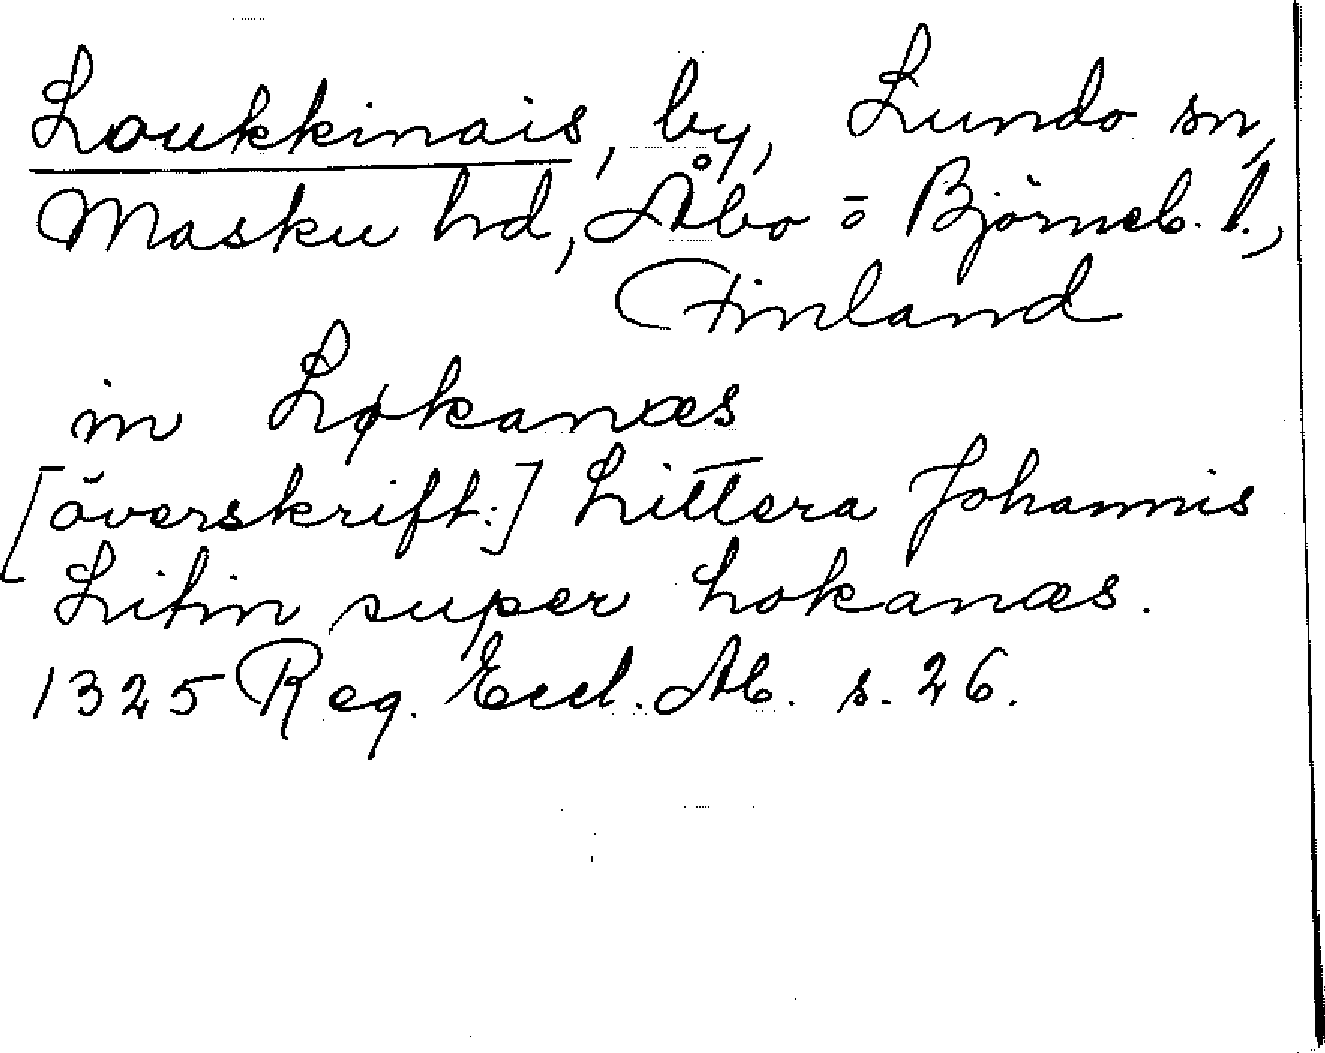 Loukkinais, by, Lundo sn,
Masku hd, Åbo o Björneb. l.,
Finland
in Løkanæs
[överskrift:] Littera Johannis
Litin super Lokanæs.
1325 Reg. Eccl. Ab. s. 26.